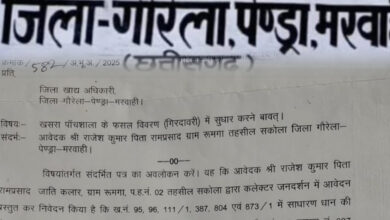 जिला-गौरेला,पेण्ड्रा,मरवाही
(छत्तीसगढ़)
क्रमांक/582/अ.भू.अ/2025
प्रति,
जिला खाद्य अधिकारी,
जिला गौरेला-पेण्ड्रा-मरवाही।
विषयः- खसरा पाँचशाला के फसल विवरण (गिरदावरी) में सुधार करने बावत्।
संदर्भः- आवेदक श्री राजेश कुमार पिता रामप्रसाद ग्राम रूमगा तहसील सकोला जिला गौरेला-
पेण्ड्रा-मरवाही।
--00--
विषयांतर्गत संदर्भित पत्र का अवलोकन करें। यह कि आवेदक श्री राजेश कुमार पिता
रामप्रसाद जाति कलार, ग्राम रूमगा, प.ह.नं. 02 तहसील सकोला द्वारा कलेक्टर जनदर्शन में आवेदन
प्रस्तुत कर निवेदन किया है कि ख.नं. 95, 96, 111/1, 387, 804 एवं 873/1 में साधारण धान की